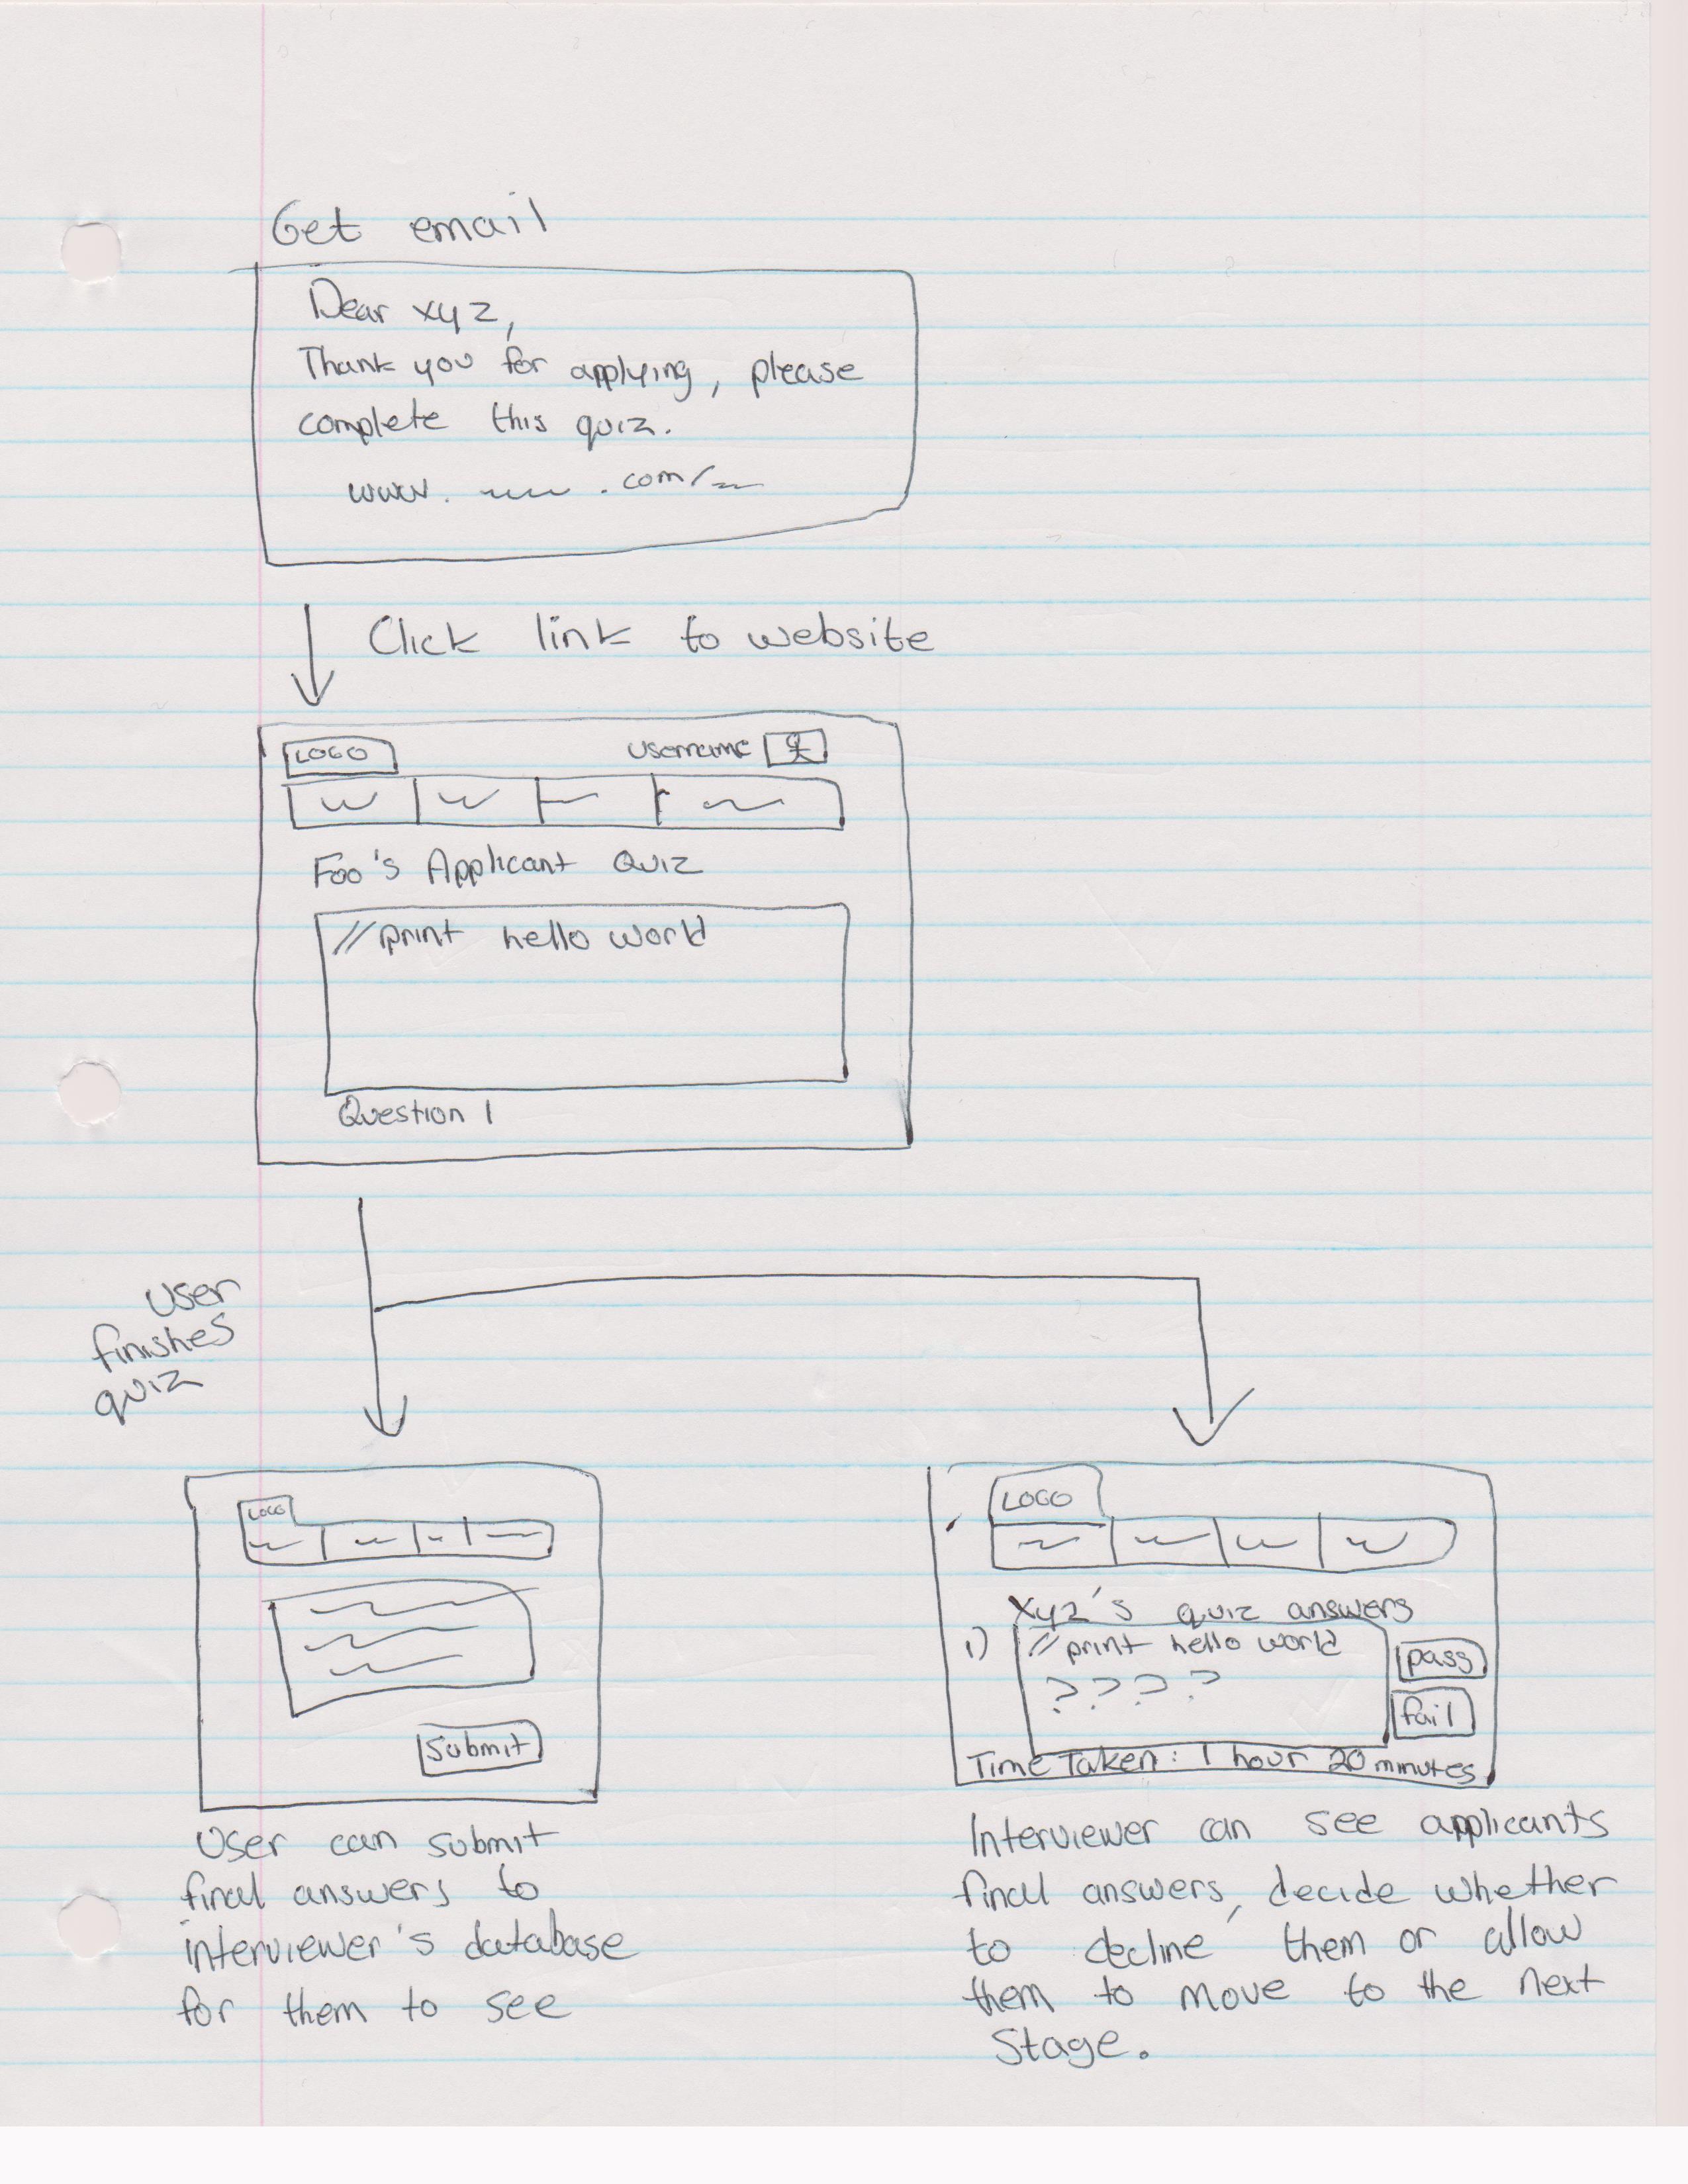 Get email
Dear xyz,
Thank you for applying, please
complete this quiz.
www. .com/
Click link to website
LOGO
username
Foo's Applicant Quiz
//print hello world
Question 1
User
finishes
quiz
LOGO
Submit
User can submit
final answers to
interviewer's database
for them to see
LOGO
xyz's quiz answers
1) //print hello world
? ? ? ?
pass
fail
Time Taken: 1 hour 20 minutes
Interviewer can see applicants
final answers, decide whether
to decline them or allow
them to move to the next
stage.